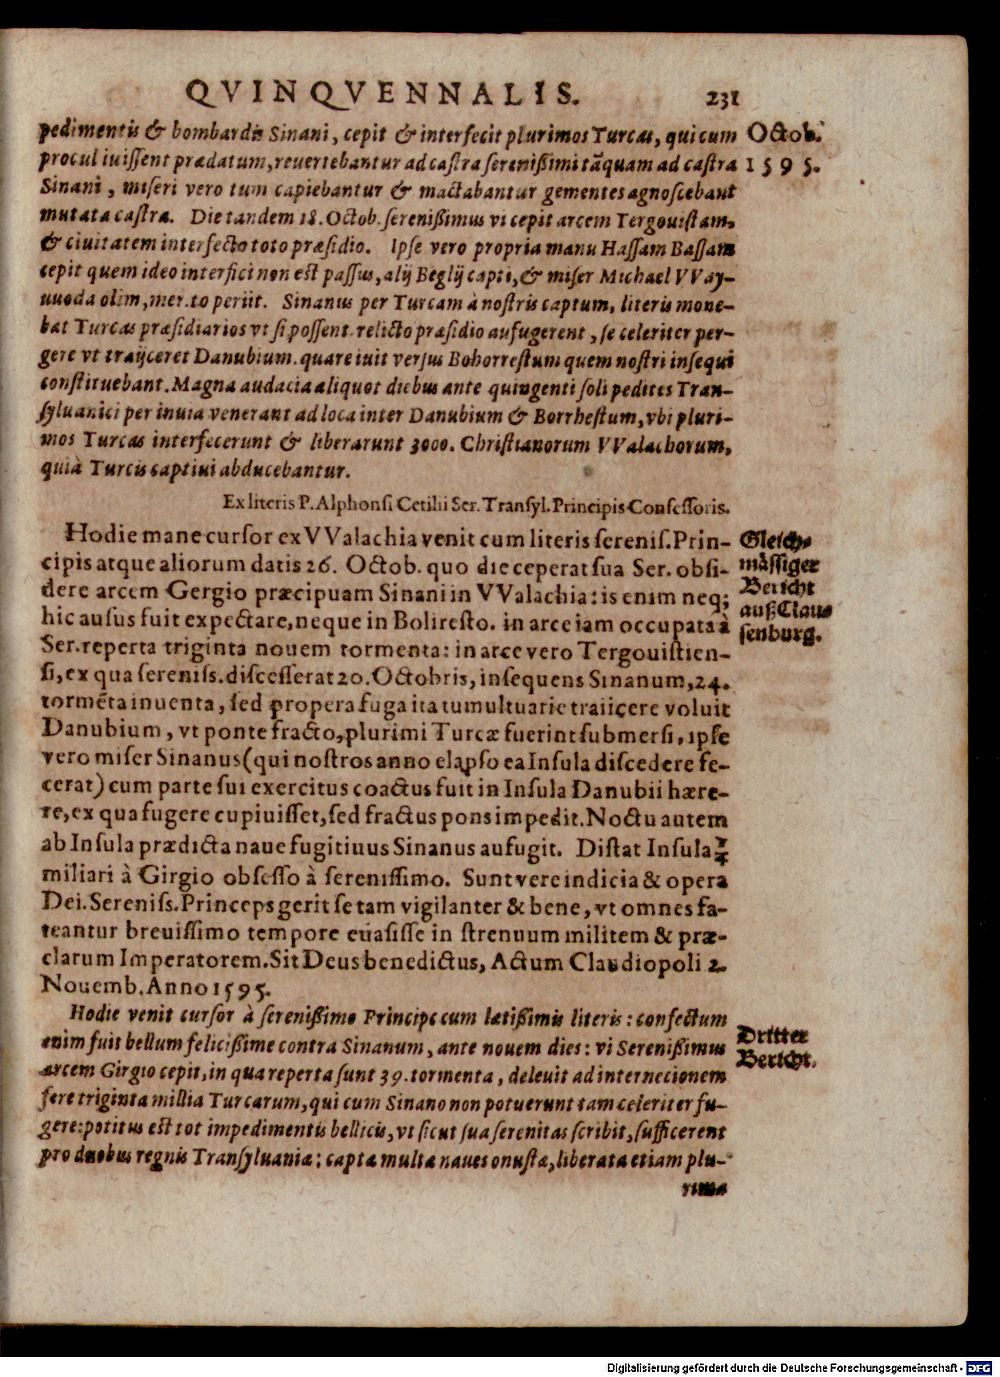 QVINQVENNALIS. 231
pedimentis & bombardis Sinani, cepit & interfecit plurimos Turcas, qui cum Octob.
procul iuissent prædatum, reuertebantur ad castra serenißimi tãquam ad castra 1595.
Sinani, miseri vero tum capiebantur & mactabantur gementes agnoscebant
mutata castra. Die tandem 18. Octob. serenißimus vi cepit arcem Tergouistam,
& ciuitatem interfecto toto præsidio. Ipse vero propria manu Hassam Bassam
cepit quem ideo interfici non est passus, alij Beglij capti, & miser Michael VVay-
uuoda olim, merito periit. Sinanus per Turcam à nostris captum, literis mone-
bat Turcas præsidiarios vt si possent relicto præsidio aufugerent, se celeriter per-
gere vt traijceret Danubium. quare iuit versus Bohorrestum quem nostri insequi
constituebant. Magna audacia aliquot diebus ante quingenti soli pedites Tran-
syluanici per inuia venerant ad loca inter Danubium & Borrhestum, vbi pluri-
mos Turcas interfecerunt & liberarunt 3000. Christianorum VValachorum,
qui à Turcis captiui abducebantur.
Ex literis P. Alphonsi Cetilii Ser. Transyl. Principis Confessoris.
Hodie mane cursor ex VValachia venit cum literis sereniss. Prin- Gleich-
cipis atque aliorum datis 26. Octob. quo die ceperat sua Ser. obsi- mässiger
dere arcem Gergio præcipuam Sinani in VValachia: is enim neq; Bericht
hic ausus fuit expectare, neque in Boliresto. in arce iam occupata à auß Clau
Ser. reperta triginta nouem tormenta: in arce vero Tergouistien- senburg.
si, ex qua sereniss. discesserat 20. Octobris, insequens Sinanum, 24.
tormẽta inuenta, sed propera fuga ita tumultuarie traiicere voluit
Danubium, vt ponte fracto, plurimi Turcæ fuerint submersi, ipse
vero miser Sinanus (qui nostros anno elapso ea Insula discedere fe-
cerat) cum parte sui exercitus coactus fuit in Insula Danubii hære-
re, ex qua fugere cupiuisset, sed fractus pons impedit. Noctu autem
ab Insula prædicta naue fugitiuus Sinanus aufugit. Distat Insula
miliari à Girgio obsesso à serenissimo. Sunt vere indicia & opera
Dei. Sereniss. Princeps gerit se tam vigilanter & bene, vt omnes fa-
teantur breuissimo tempore euasisse in strenuum militem & præ-
clarum Imperatorem. Sit Deus benedictus, Actum Claudiopoli 2.
Nouemb. Anno 1595.
Hodie venit cursor à serenißimo Principe cum lætißimis literis: confectum Dritter
enim fuit bellum felicißime contra Sinanum, ante nouem dies: vi Serenißimus Bericht.
arcem Girgio cepit, in qua reperta sunt 39. tormenta, deleuit ad internecionem
fere triginta millia Turcarum, qui cum Sinano non potuerunt tam celeriter fu-
gere: potitus est tot impedimentis bellicis, vt sicut sua serenitas scribit, sufficerent
pro duobus regnis Transyluaniæ; capta multæ naues onustæ, liberata etiam plu-
rima
Digitalisierung gefördert durch die Deutsche Forschungsgemeinschaft - DFG